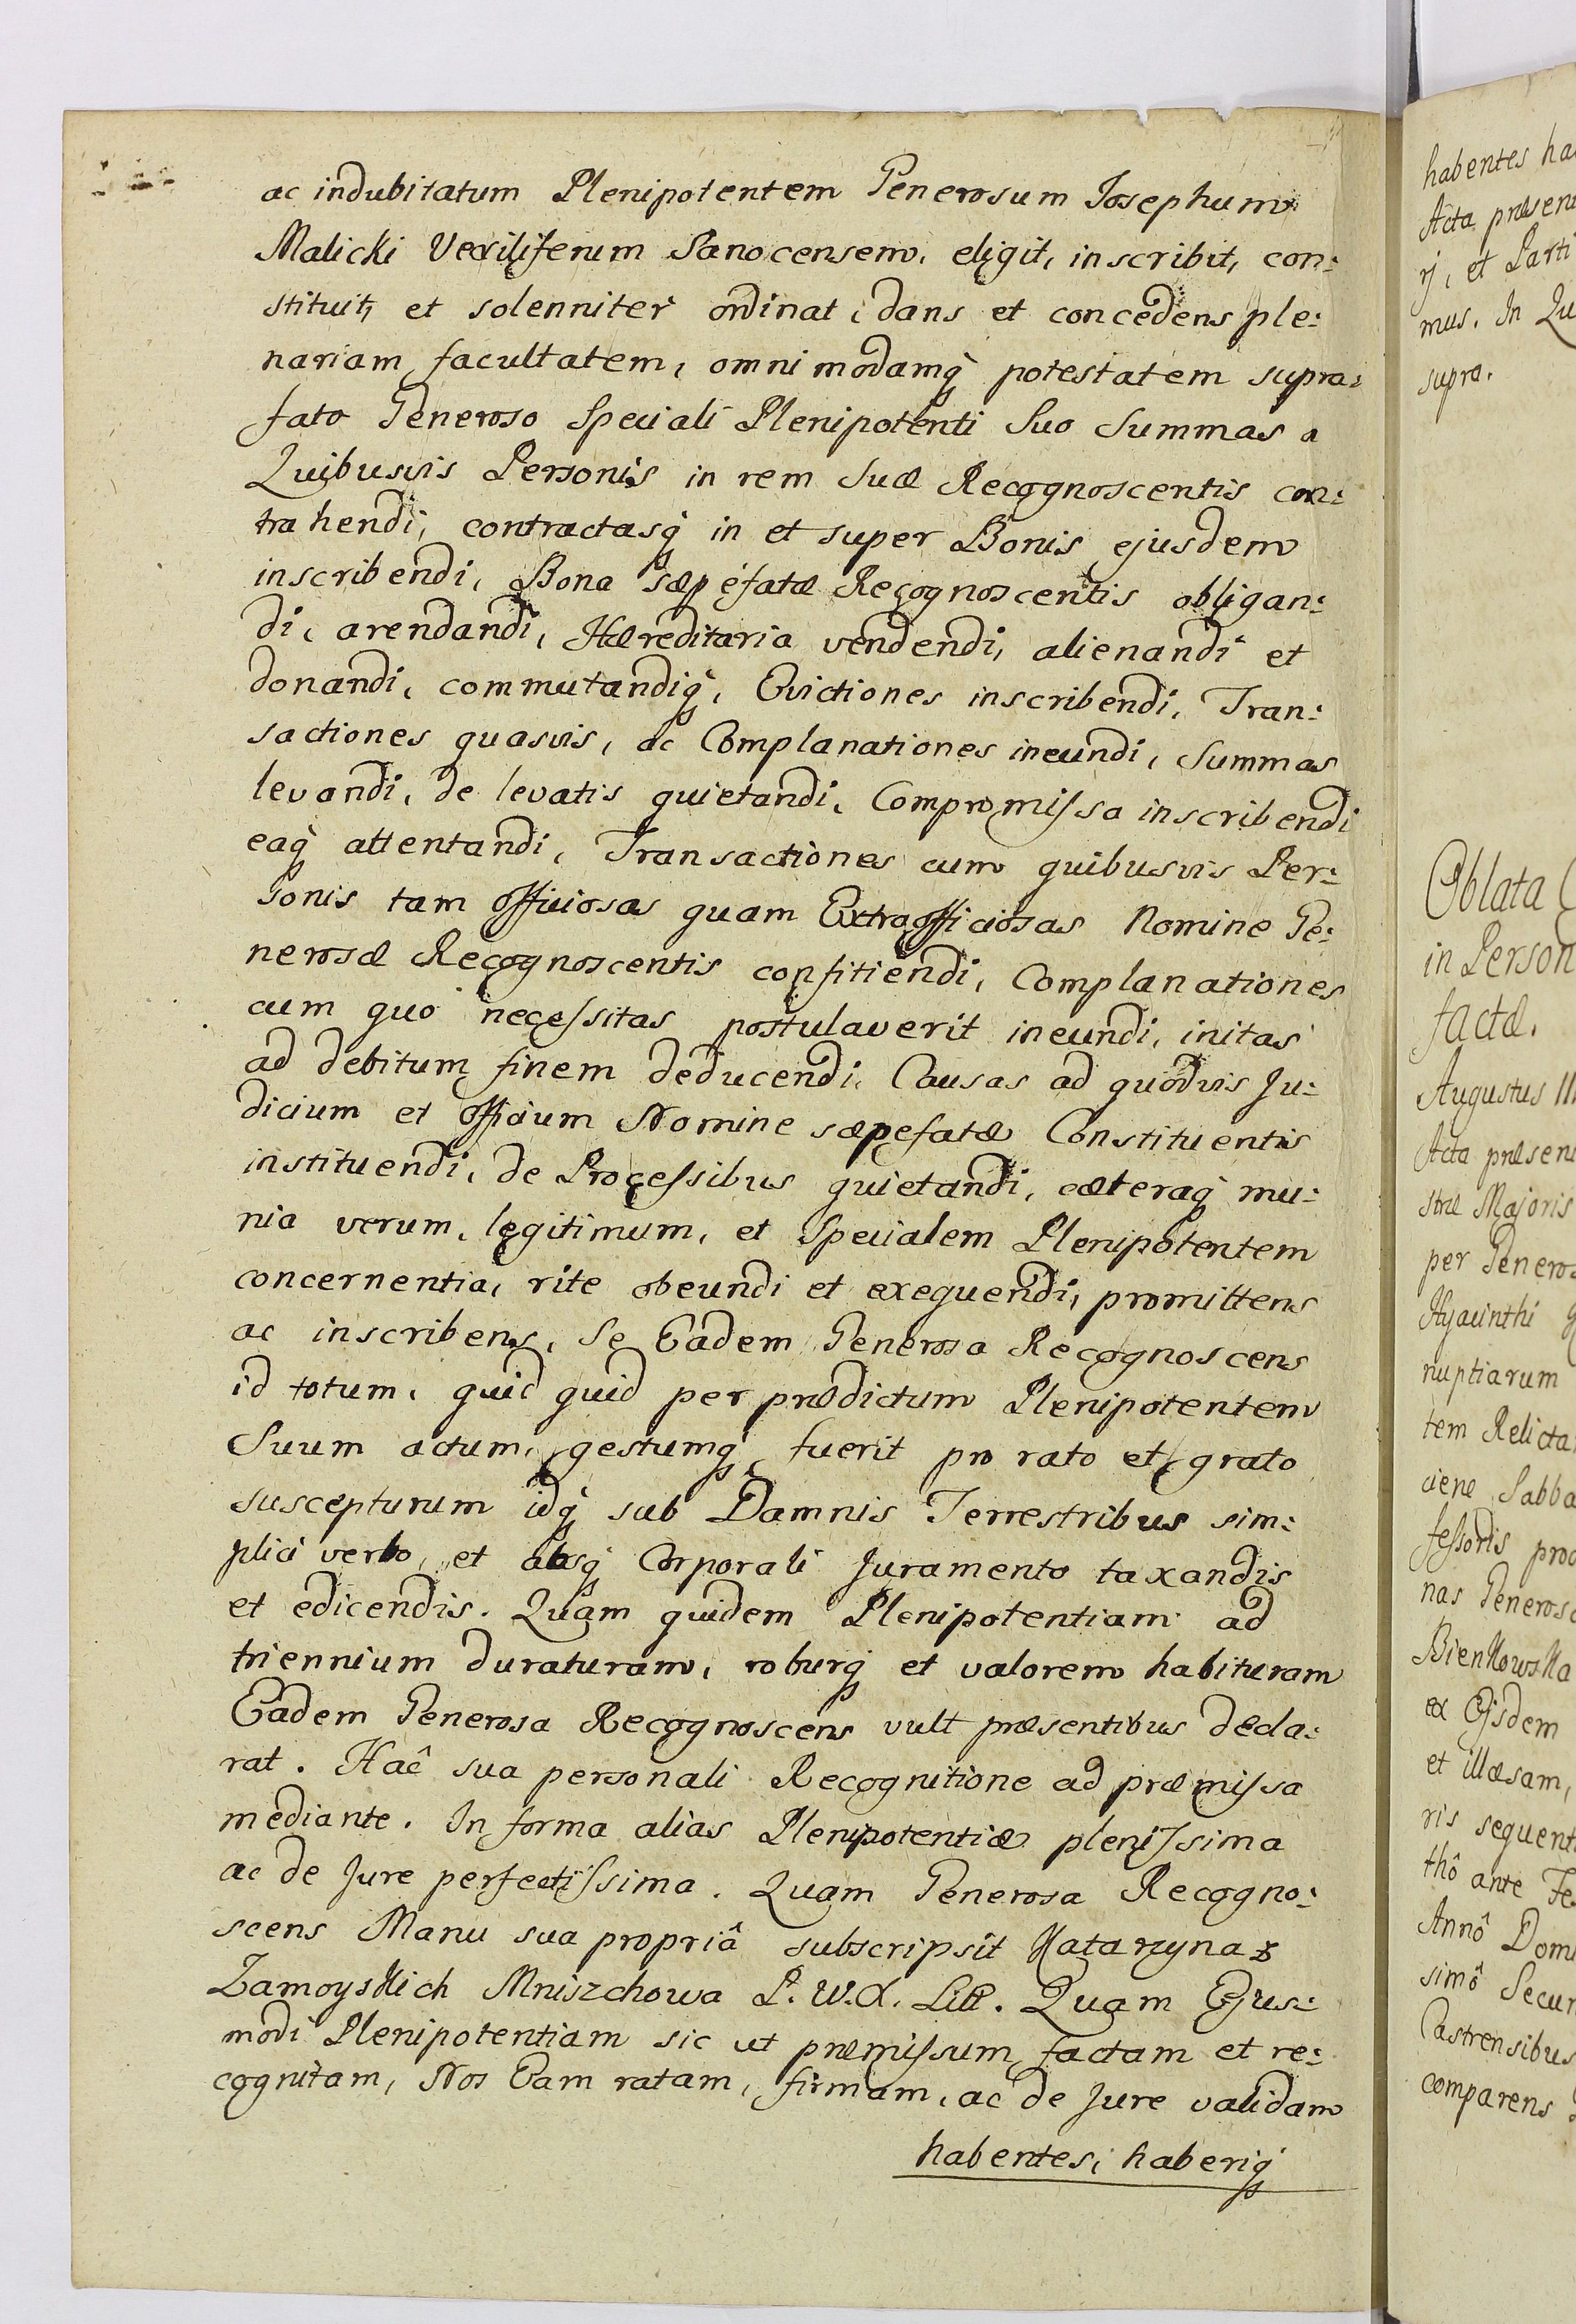 ac indubitatum Plenipotentem Generosum Josephum
Malicki Vexiliferum Sanocensem, eligit, inscribit, con:
stituit, et solenniter ordinat, dans et concedens ple:
nariam facultatem, omnimodamq́ potestatem supra:
fato Generoso Speciali Plenipotenti Suo Summas a
Quibusvis Personis in rem Suæ Recognoscentis con:
trahendi, contractasq́ in et super Bonis ejusdem
inscribendi, Bona sæpefatæ Recognoscentis obligan:
di, arendandi, Hæreditaria vendendi, alienandi et
donandi, commutandiq́, Evictiones inscribendi, Tran:
sactiones quasvis, ac Complanationes ineundi, Summas
levandi, de levatis quietandi, Compromissa inscribendi
eaq́ attentandi, Transactiones cum quibusvis Per:
sonis tam officiosas quam Extraofficiosas Nomine Ge:
nerosæ Recognoscentis confitiendi, Complanationes
cum quo necessitas postulaverit ineundi, initas
ad debitum finem deducendi, Causas ad quodvis Ju:
dicium et officium Nomine sæpefatæ Constituentis
instituendi, de Processibus quietandi, cæteraq́ mu:
nia verum, legitimum, et Specialem Plenipotentem
concernentia, rite obeundi et exequendi, promittens
ac inscribens, Se Eadem Generosa Recognoscens
id totum, quid quid per prædictum Plenipotentem
Suum actum, gestumq́ fuerit pro rato et grato
suscepturum idq́ sub Damnis Terrestribus sim:
plici verbo, et absq́ Corporali Juramento taxandis
et edicendis. Quam quidem Plenipotentiam ad
triennium duraturam, roburq́ et valorem habituram
Eadem Generosa Recognoscens vult præsentibus decla:
rat. Hac̑ sua personali Recognitione ad præmissa
mediante. In forma alias Plenipotentiæ plenissima
ac de Jure perfectissima. Quam Generosa Recogno:
scens Manu sua propriâ subscripsit Katarzyna z
Zamoyskich Mniszchowa P. W. X. Litt. Quam Ejus:
modi Plenipotentiam sic ut præmissum factam et re:
cognitam, Nos Eam ratam, firmam, ac de Jure validam
habentes, haberiq́
habentes
Acta præsen
rj, et Parti
mus. In Qu
supra.
Oblata
in Person
factæ.
Augustus III
Acta præsen
stræ Majoris
per Generos
Hyacinthi
nuptiarum
tem Relicta
ciene Sabba
fessoris pro
nas Generos
Bienkowska
ex Ejsdem
et illæsam,
ris sequent
thô ante Fe
Annô Dom
simô Secun
Castrensibus
comparens